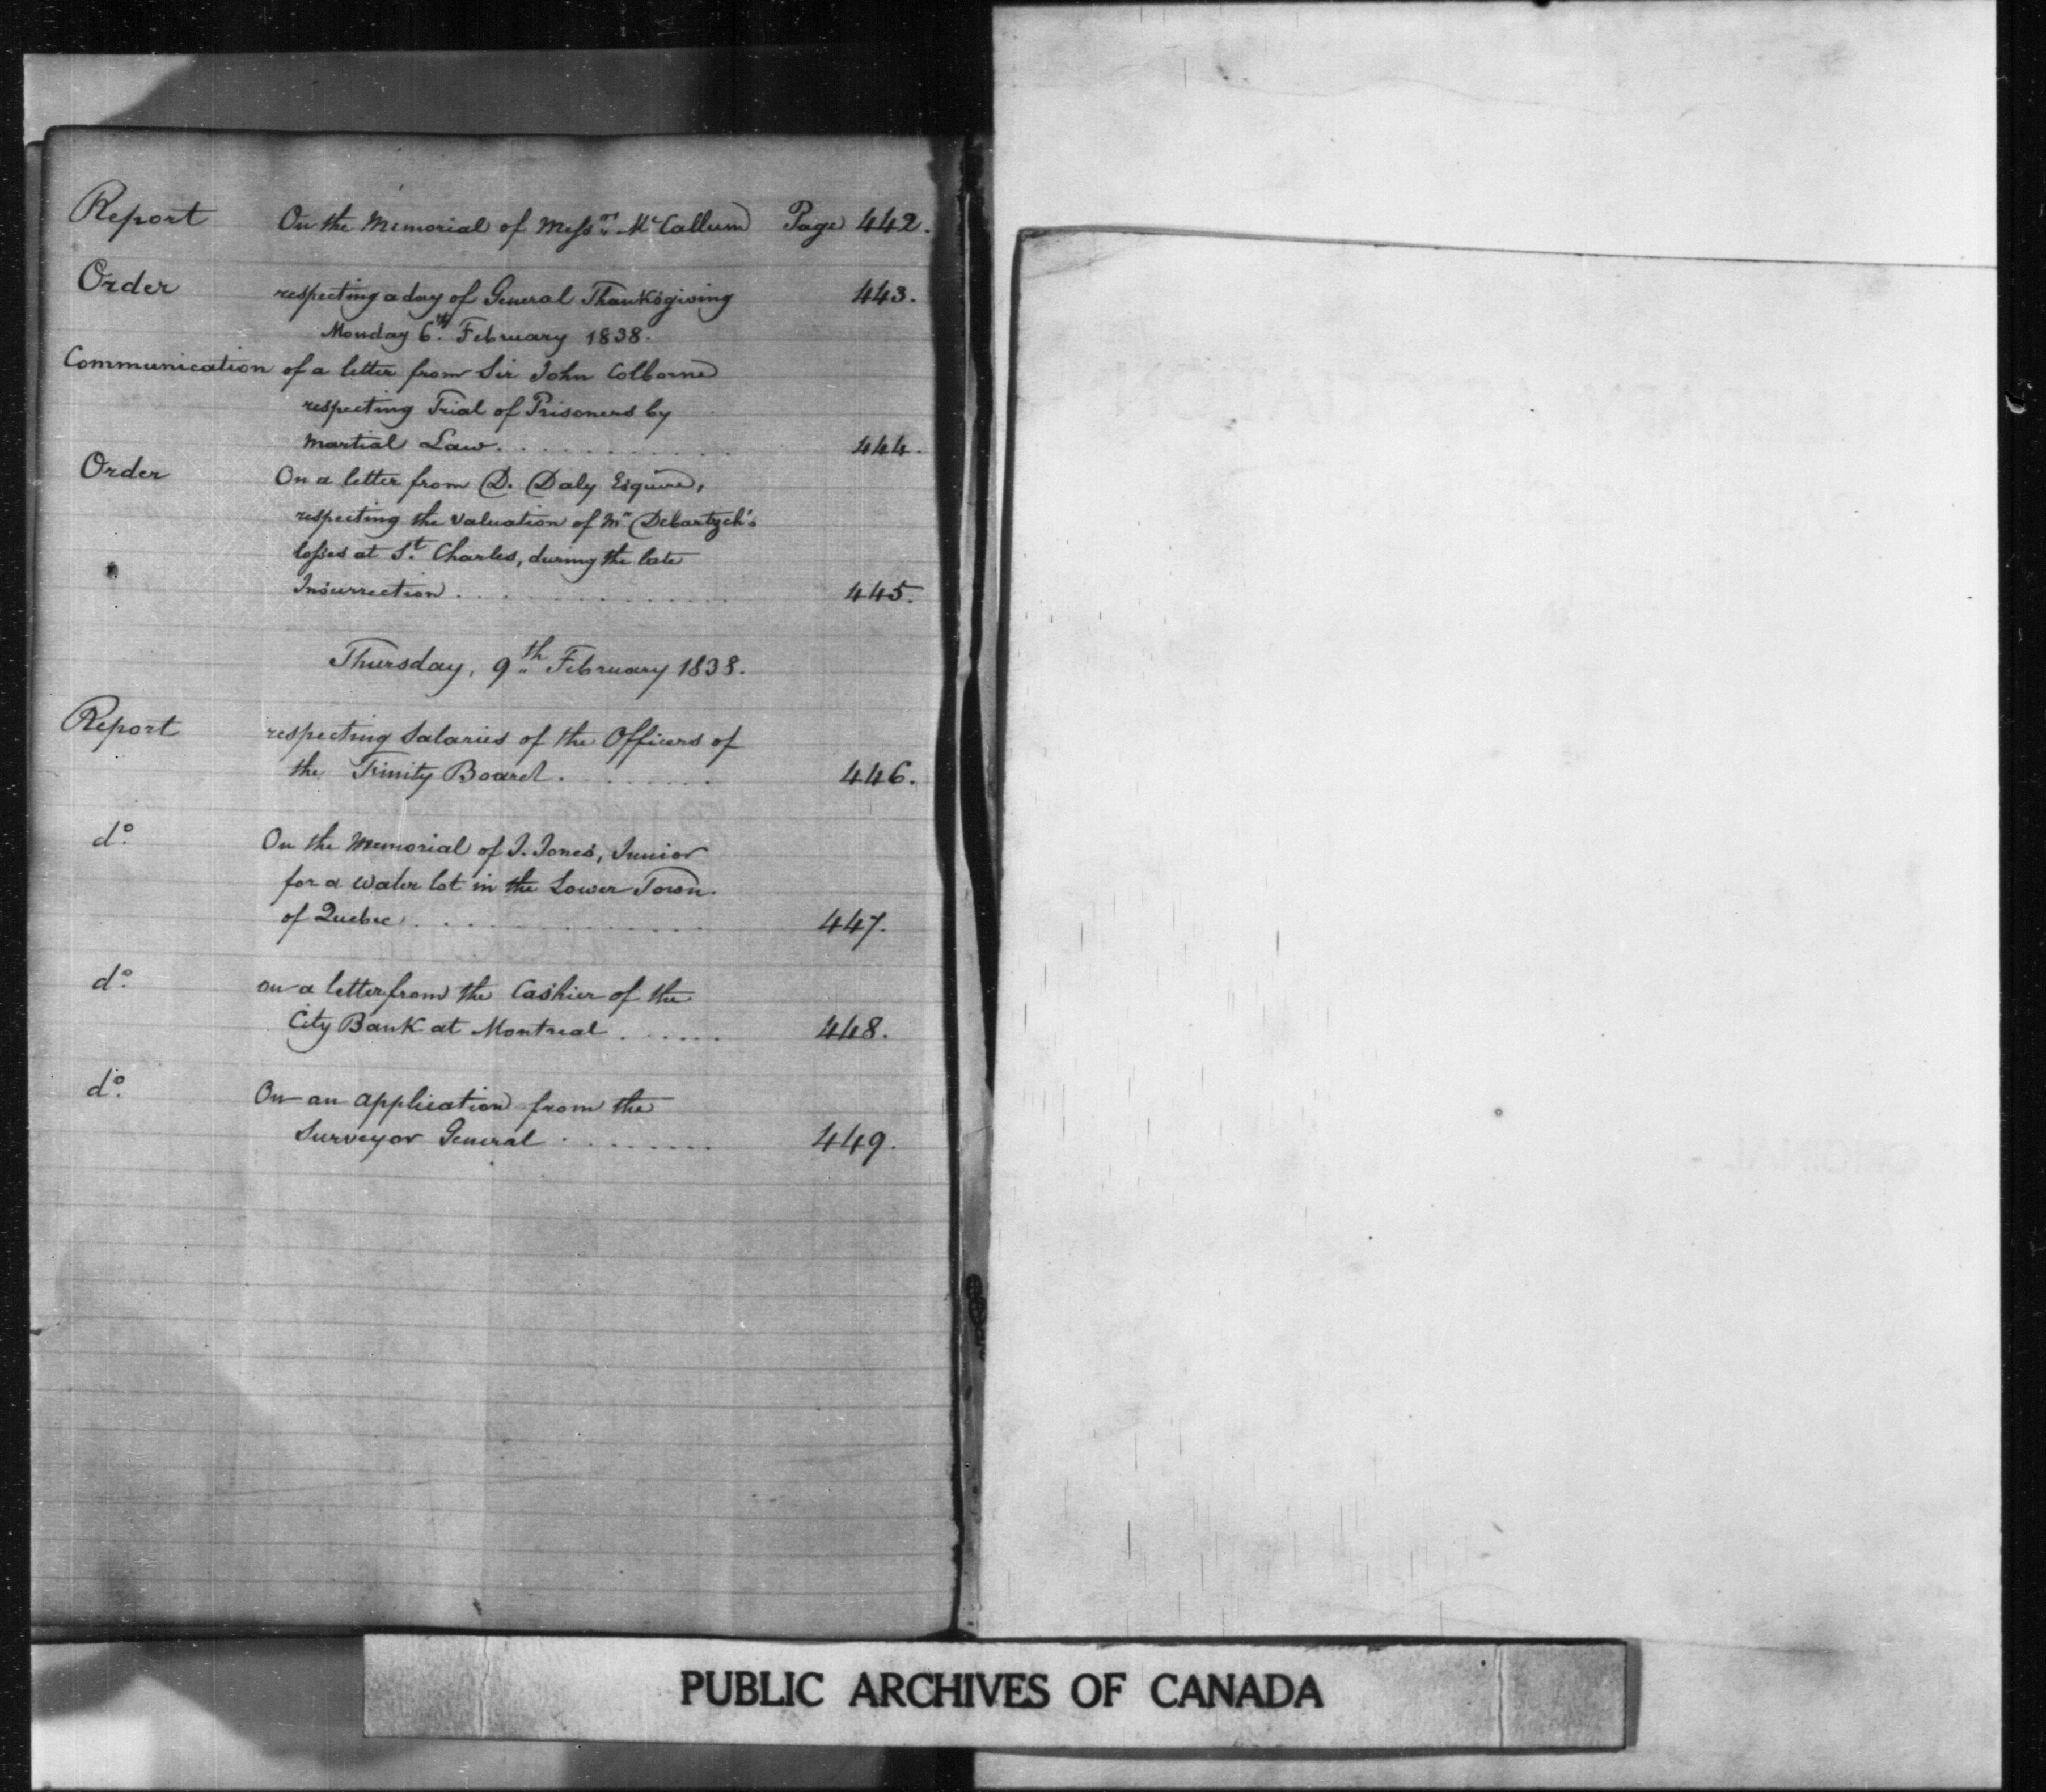 Report On the Memorial of Messrs. McCallum Page 442.
Order respecting a day of General Thanksgiving 443.
Monday 6th. February 1838.
Communication of a letter from Sir John Colborne
respecting Trial of Prisoners by
Martial Law. . . . . . . . . . . 444.
Order On a letter from D. Daly Esquire,
respecting the Valuation of Mr Debartzch's
losses at St. Charles, during the late
Insurrection . . . . . . . . . . . 445.
Thursday, 9th February 1838.
Report respecting Salaries of the Officers of
the Trinity Board . . . . . . . 446.
do. On the Memorial of J. Jones, Junior
for a Water lot in the Lower Town
of Quebec . . . . . . . . . . . 447.
do. on a letter from the Cashier of the
City Bank at Montreal . . . . . . 448.
do. On an application from the
Surveyor General . . . . . . . . 449.
PUBLIC ARCHIVES OF CANADA